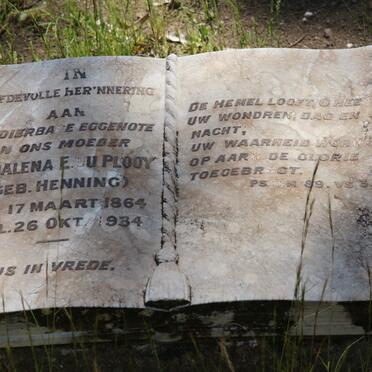 IN
FDEVOLLE HER'NNERING
AAN
DIERBA E EGGENOTE
N ONS MOEDER
ALENA E. U PLOOY
GEB. HENNING)
17 MAART 1864
L. 26 OKT. 1934
US IN VREDE.
DE HEMEL LOOFT, O HEE
UW WONDREN, DAG EN
NACHT,
UW WAARHEID WOR
OP AAR E GLORIE
TOEGEBR CT.
PS M 89. VS 3